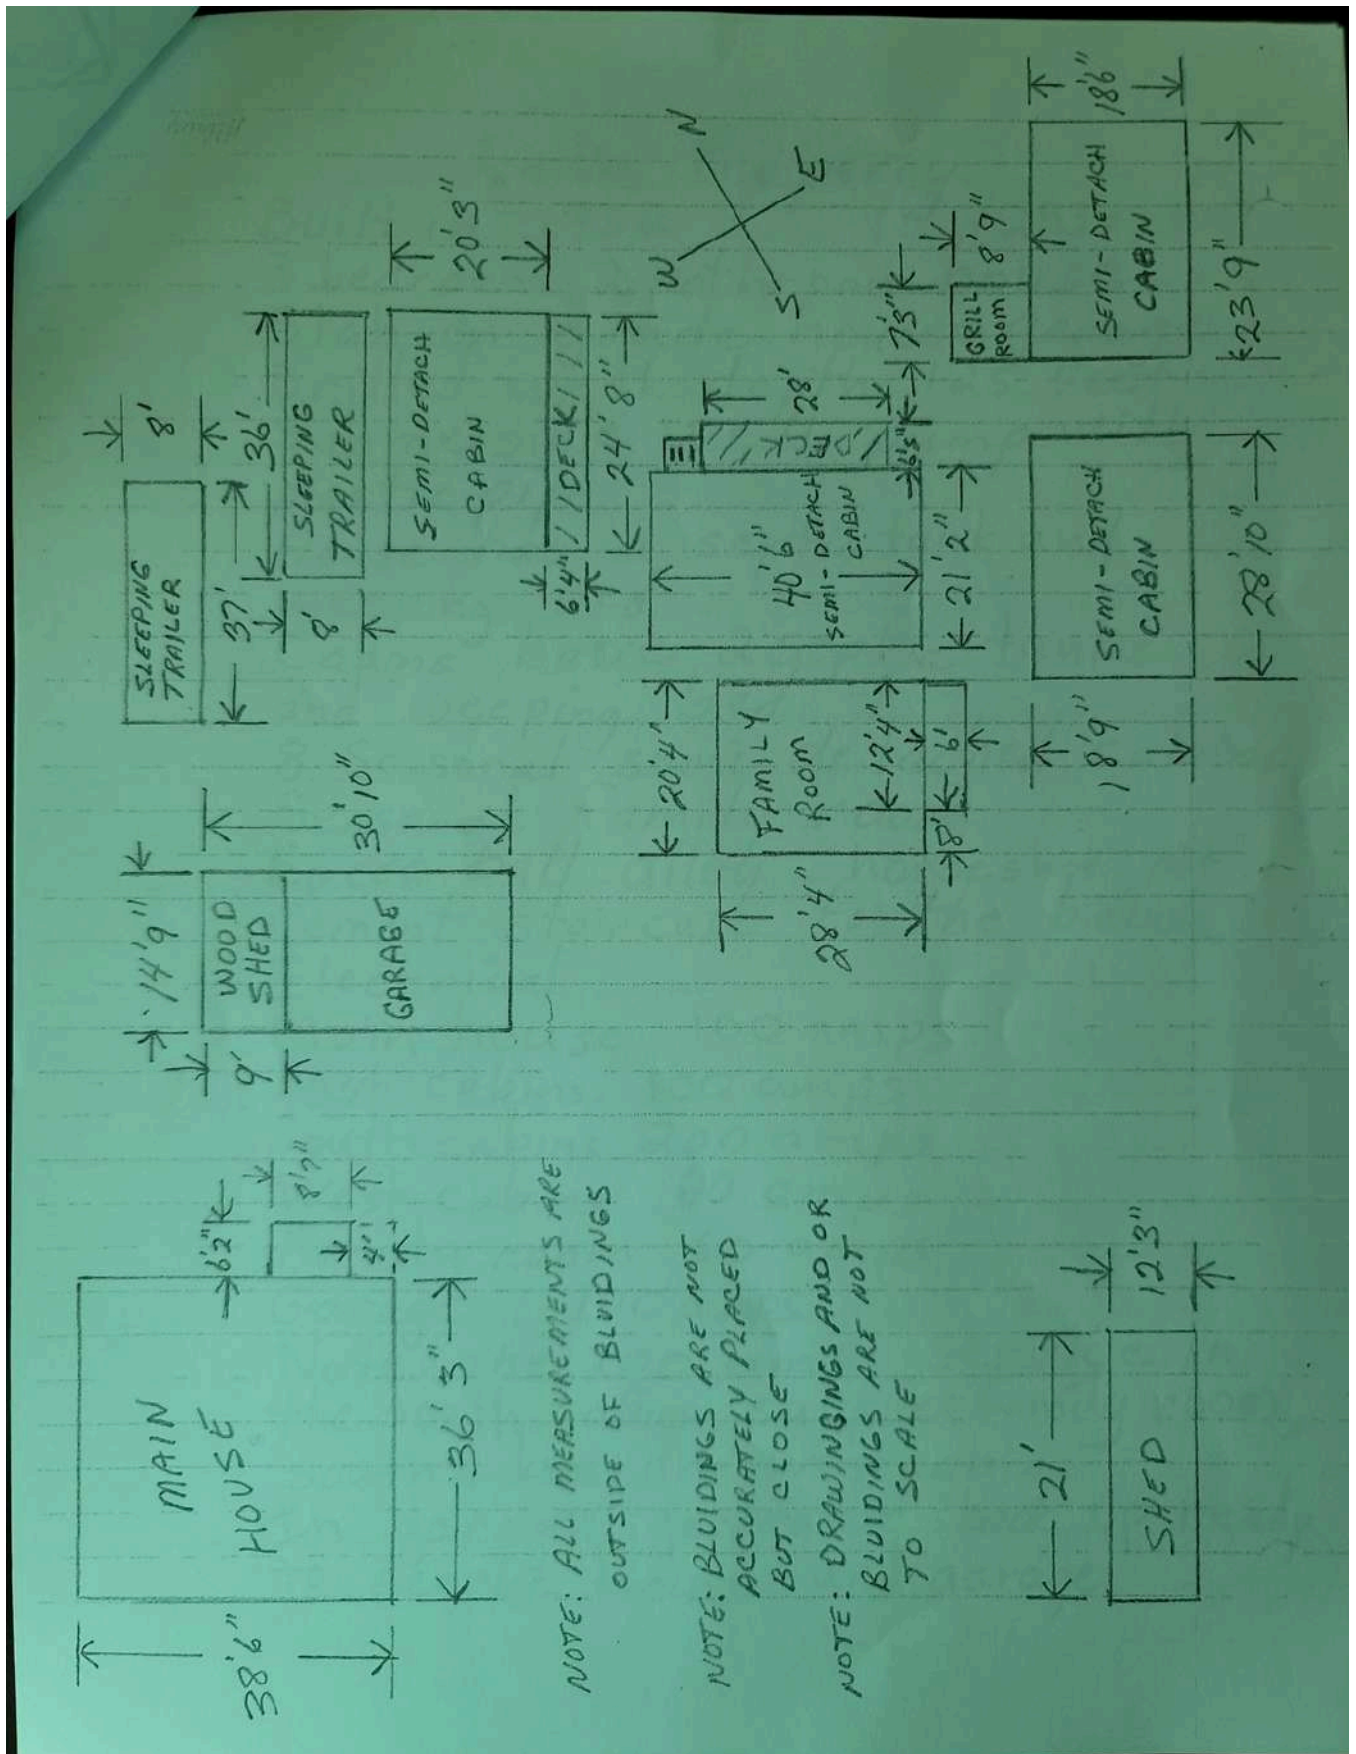 MAIN
HOUSE
38'6"
36' 3"
6'2"
8'7"
4'
14'9"
WOOD
SHED
9'
GARAGE
30'10"
SLEEPING
TRAILER
8'
37'
SLEEPING
TRAILER
36'
8'
SEMI-DETACH
CABIN
20'3"
DECK
6'4"
24' 8"
N
E
S
W
20'4"
FAMILY
ROOM
28'4"
12'4"
8'
6'
40'6"
SEMI-DETACH
CABIN
DECK
28'
21' 2"
7'3"
GRILL
ROOM
8'9"
SEMI-DETACH
CABIN
18'6"
23'9"
SEMI-DETACH
CABIN
18'9"
28'10"
NOTE: ALL MEASUREMENTS ARE
OUTSIDE OF BLUIDINGS
NOTE: BLUIDINGS ARE NOT
ACCURATELY PLACED
BUT CLOSE
NOTE: DRAWINGINGS AND OR
BLUIDINGS ARE NOT
TO SCALE
21'
SHED
12'3"